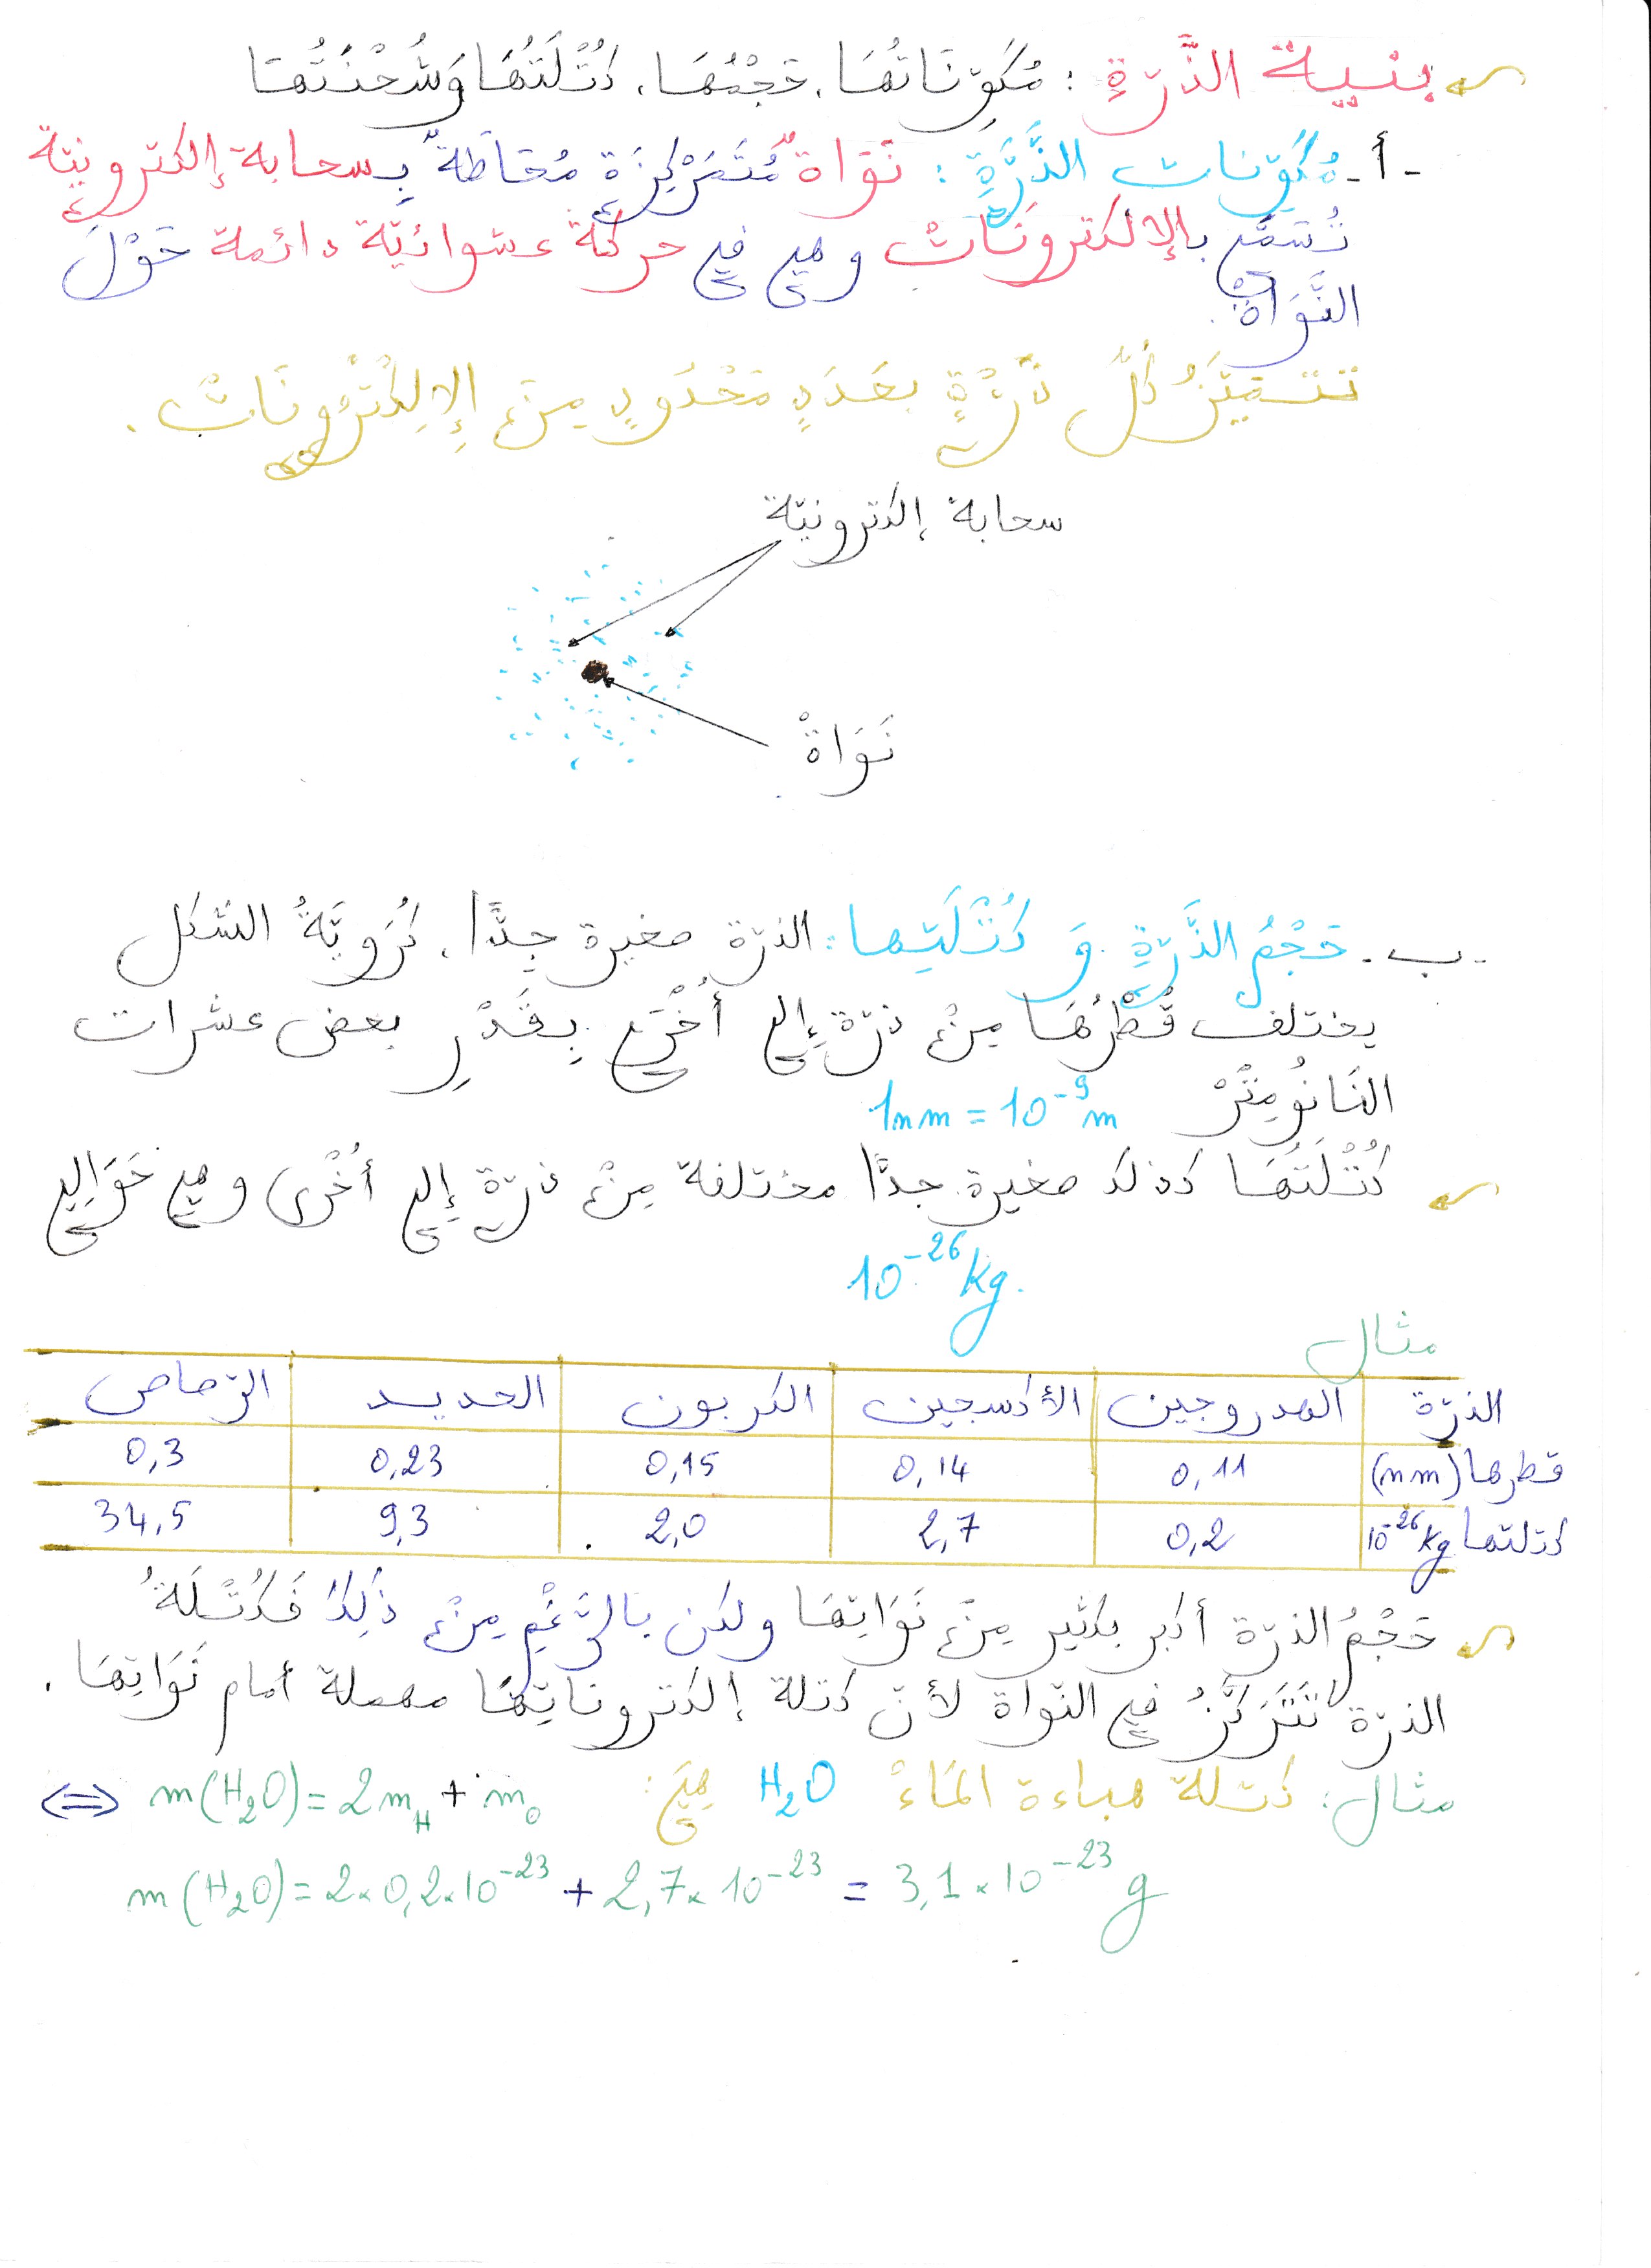 بنية الذَّرّةِ : مُكَوِّنَاتُهَا، حَجْمُهَا، كُتْلَتُهَا وَشُحْنَتُهَا
-أ- مُكَوِّنات الذَّرَّةِ : نَوَاةٌ مُتَمَرْكِزَةٍ مُحَاطَةٌ بِسحابة إلكترونيّة
تُسَمَّى بالإلكترونَاتْ وهي في حركةٌ عشوائيّة دائمة حَوْلَ
النَّوَاةْ.
تتميَّزُ كُلّ ذَرَّةٍ بعَدَدٍ مَحْدُودٍ مِنَ الإِلِكْتْرُونَاتْ.
سحابة إلكترونيّة
نَوَاةْ
-ب- حَجْمُ الذَّرّةِ وَ كُتْلَتِها: الذرّة صغيرة جِدًّا، كُرَوِيَّةُ الشكل
يختلف قُطْرُهَا مِنْ ذرّة إلى أُخْرَى بِقَدْرِ بعض عشرات
النَانُومِتْرْ 1nm = 10⁻⁹m
كُتْلَتُهَا كذلك صغيرة جدًّا مختلفة مِنْ ذرّة إلى أُخْرى وهي حَوَالِي
10⁻²⁶ kg.
مثال
الذرّة | الهدروجين | الأكسجين | الكربون | الحديد | الرّصاص
قطرها (nm) | 0,11 | 0,14 | 0,15 | 0,23 | 0,3
كتلتها 10⁻²⁶kg | 0,2 | 2,7 | 2,0 | 9,3 | 34,5
حَجْمُ الذرّة أكبر بكثير مِنْ نَوَاتِهَا ولكن بَالرَّغْمِ مِنْ ذَلِكَ فَكُتْلَةُ
الذرّة تَتَرَكَّزُ في النّواة لأنّ كتلة إلكتروناتِهَا مهملة أمام نَوَاتِهَا.
مثال: كتلة هباءة المَاءْ H₂O هِيَ: m(H₂O) = 2m_H + m_O ⟺
m(H₂O) = 2×0,2×10⁻²³ + 2,7×10⁻²³ = 3,1×10⁻²³ g